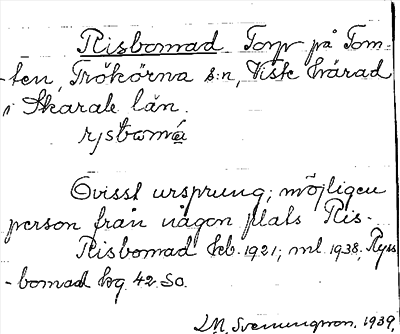 Risbomad Torp på Tom-
ten, Trökörna s:n, Viste härad
i Skarab. län.
Ovisst ursprung; möjligen
person från någon plats Ris-
Risbomad hb. 1921; ml. 1938, Ryss
-bomad hg. 42. So.
LM. Svenungson. 1939.